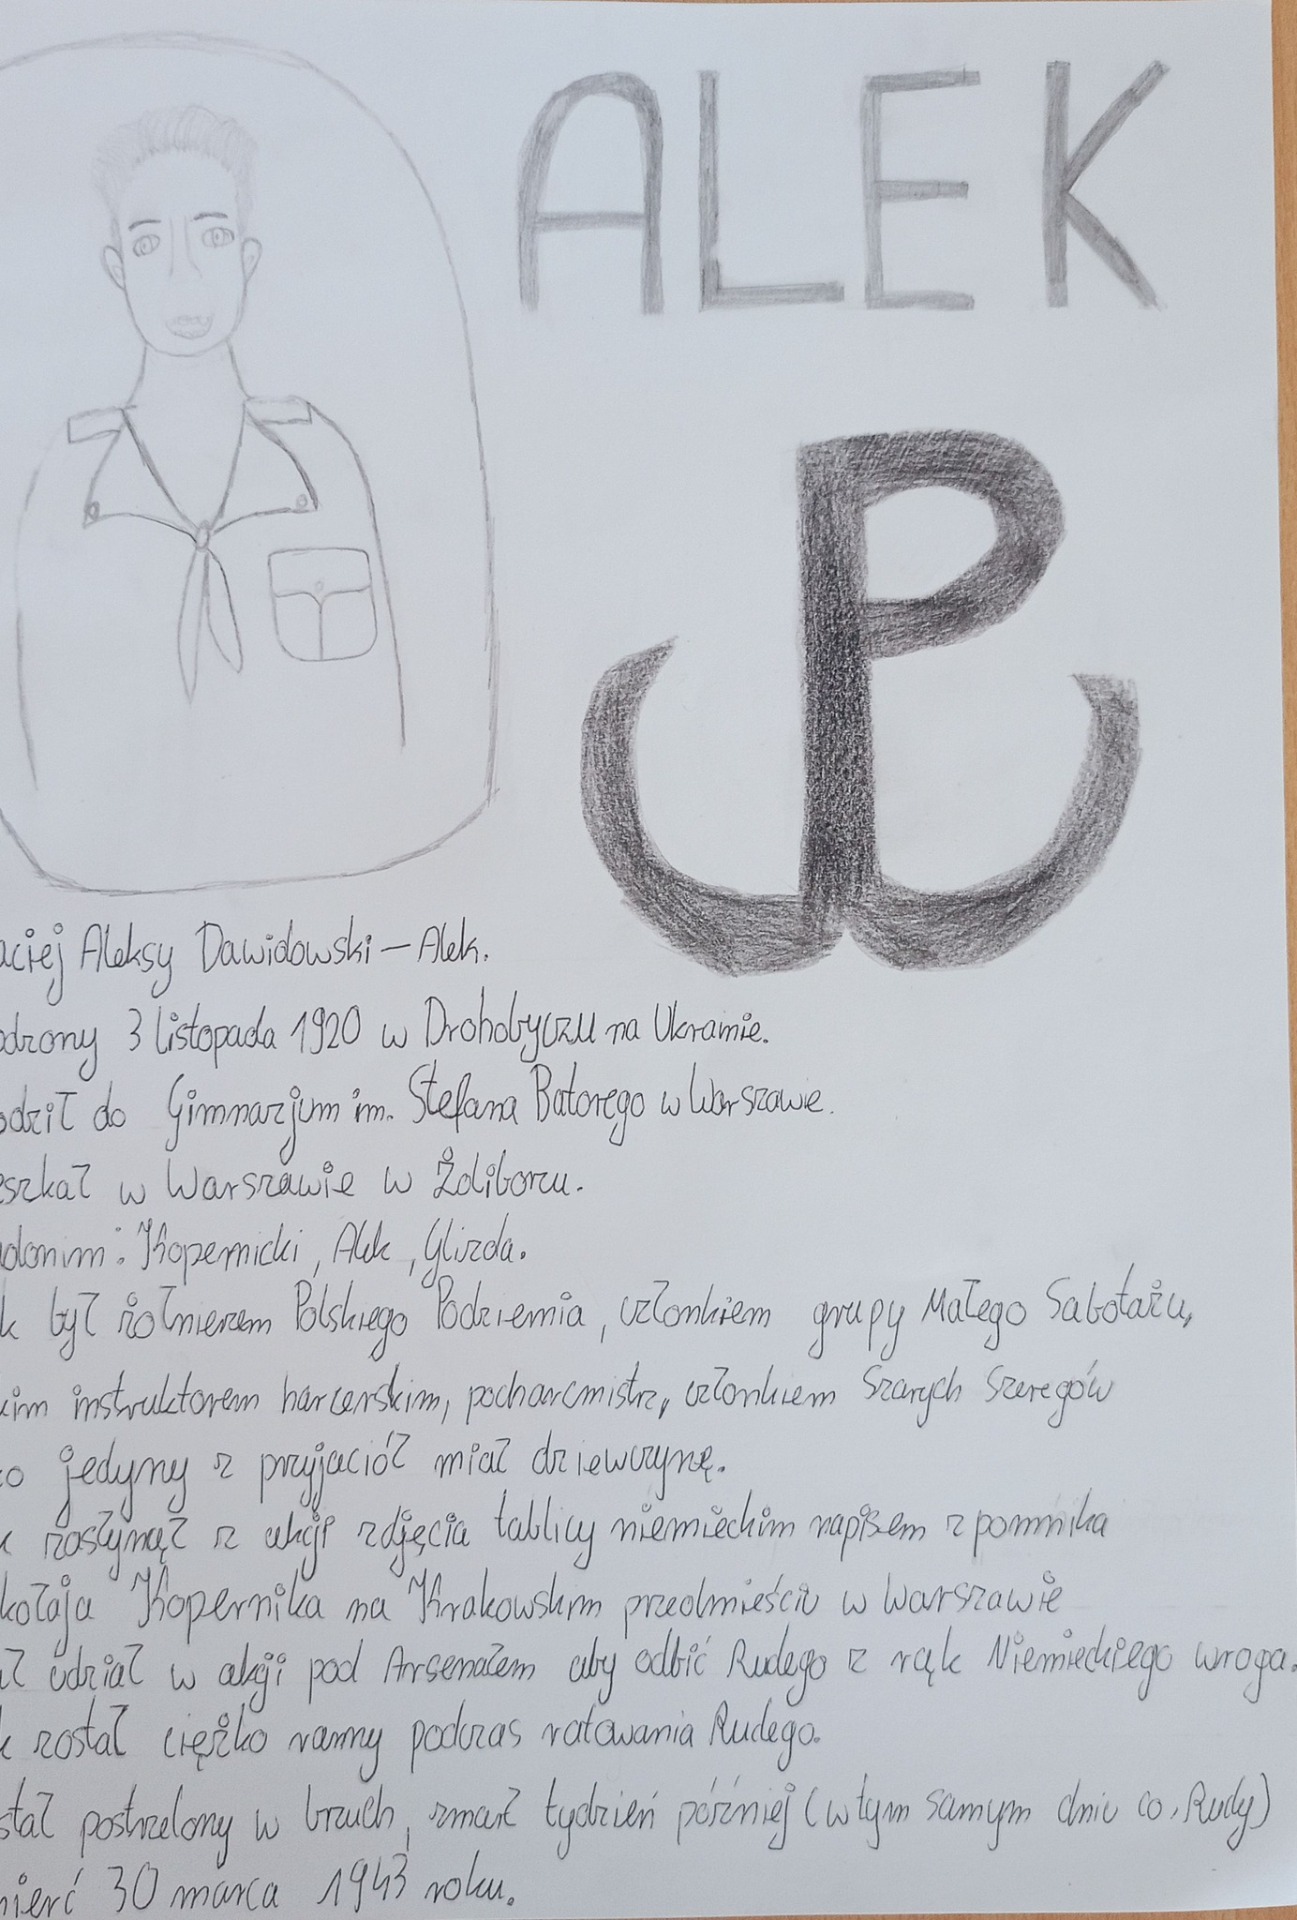 ALEK
aciej Aleksy Dawidowski – Alek.
odzony 3 listopada 1920 w Drohobyczu na Ukrainie.
odził do Gimnazjum im. Stefana Batorego w Warszawie.
eszkał w Warszawie w Żoliborzu.
adonim: Kopernicki, Alek, Glizda.
k był żołnierzem Polskiego Podziemia, członkiem grupy Małego Sabotażu,
kim instruktorem harcerskim, podharcmistrz, członkiem Szarych Szeregów
ko jedyny z przyjaciół miał dziewczynę.
k zasłynął z akcji zdjęcia tablicy niemieckim napisem z pomnika
kołaja Kopernika na Krakowskim przedmieściu w Warszawie
ał udział w akcji pod Arsenałem aby odbić Rudego z rąk Niemieckiego wroga.
k został ciężko ranny podczas ratowania Rudego.
stał postrzelony w brzuch, zmarł tydzień później (w tym samym dniu co, Rudy)
mierć 30 marca 1943 roku.